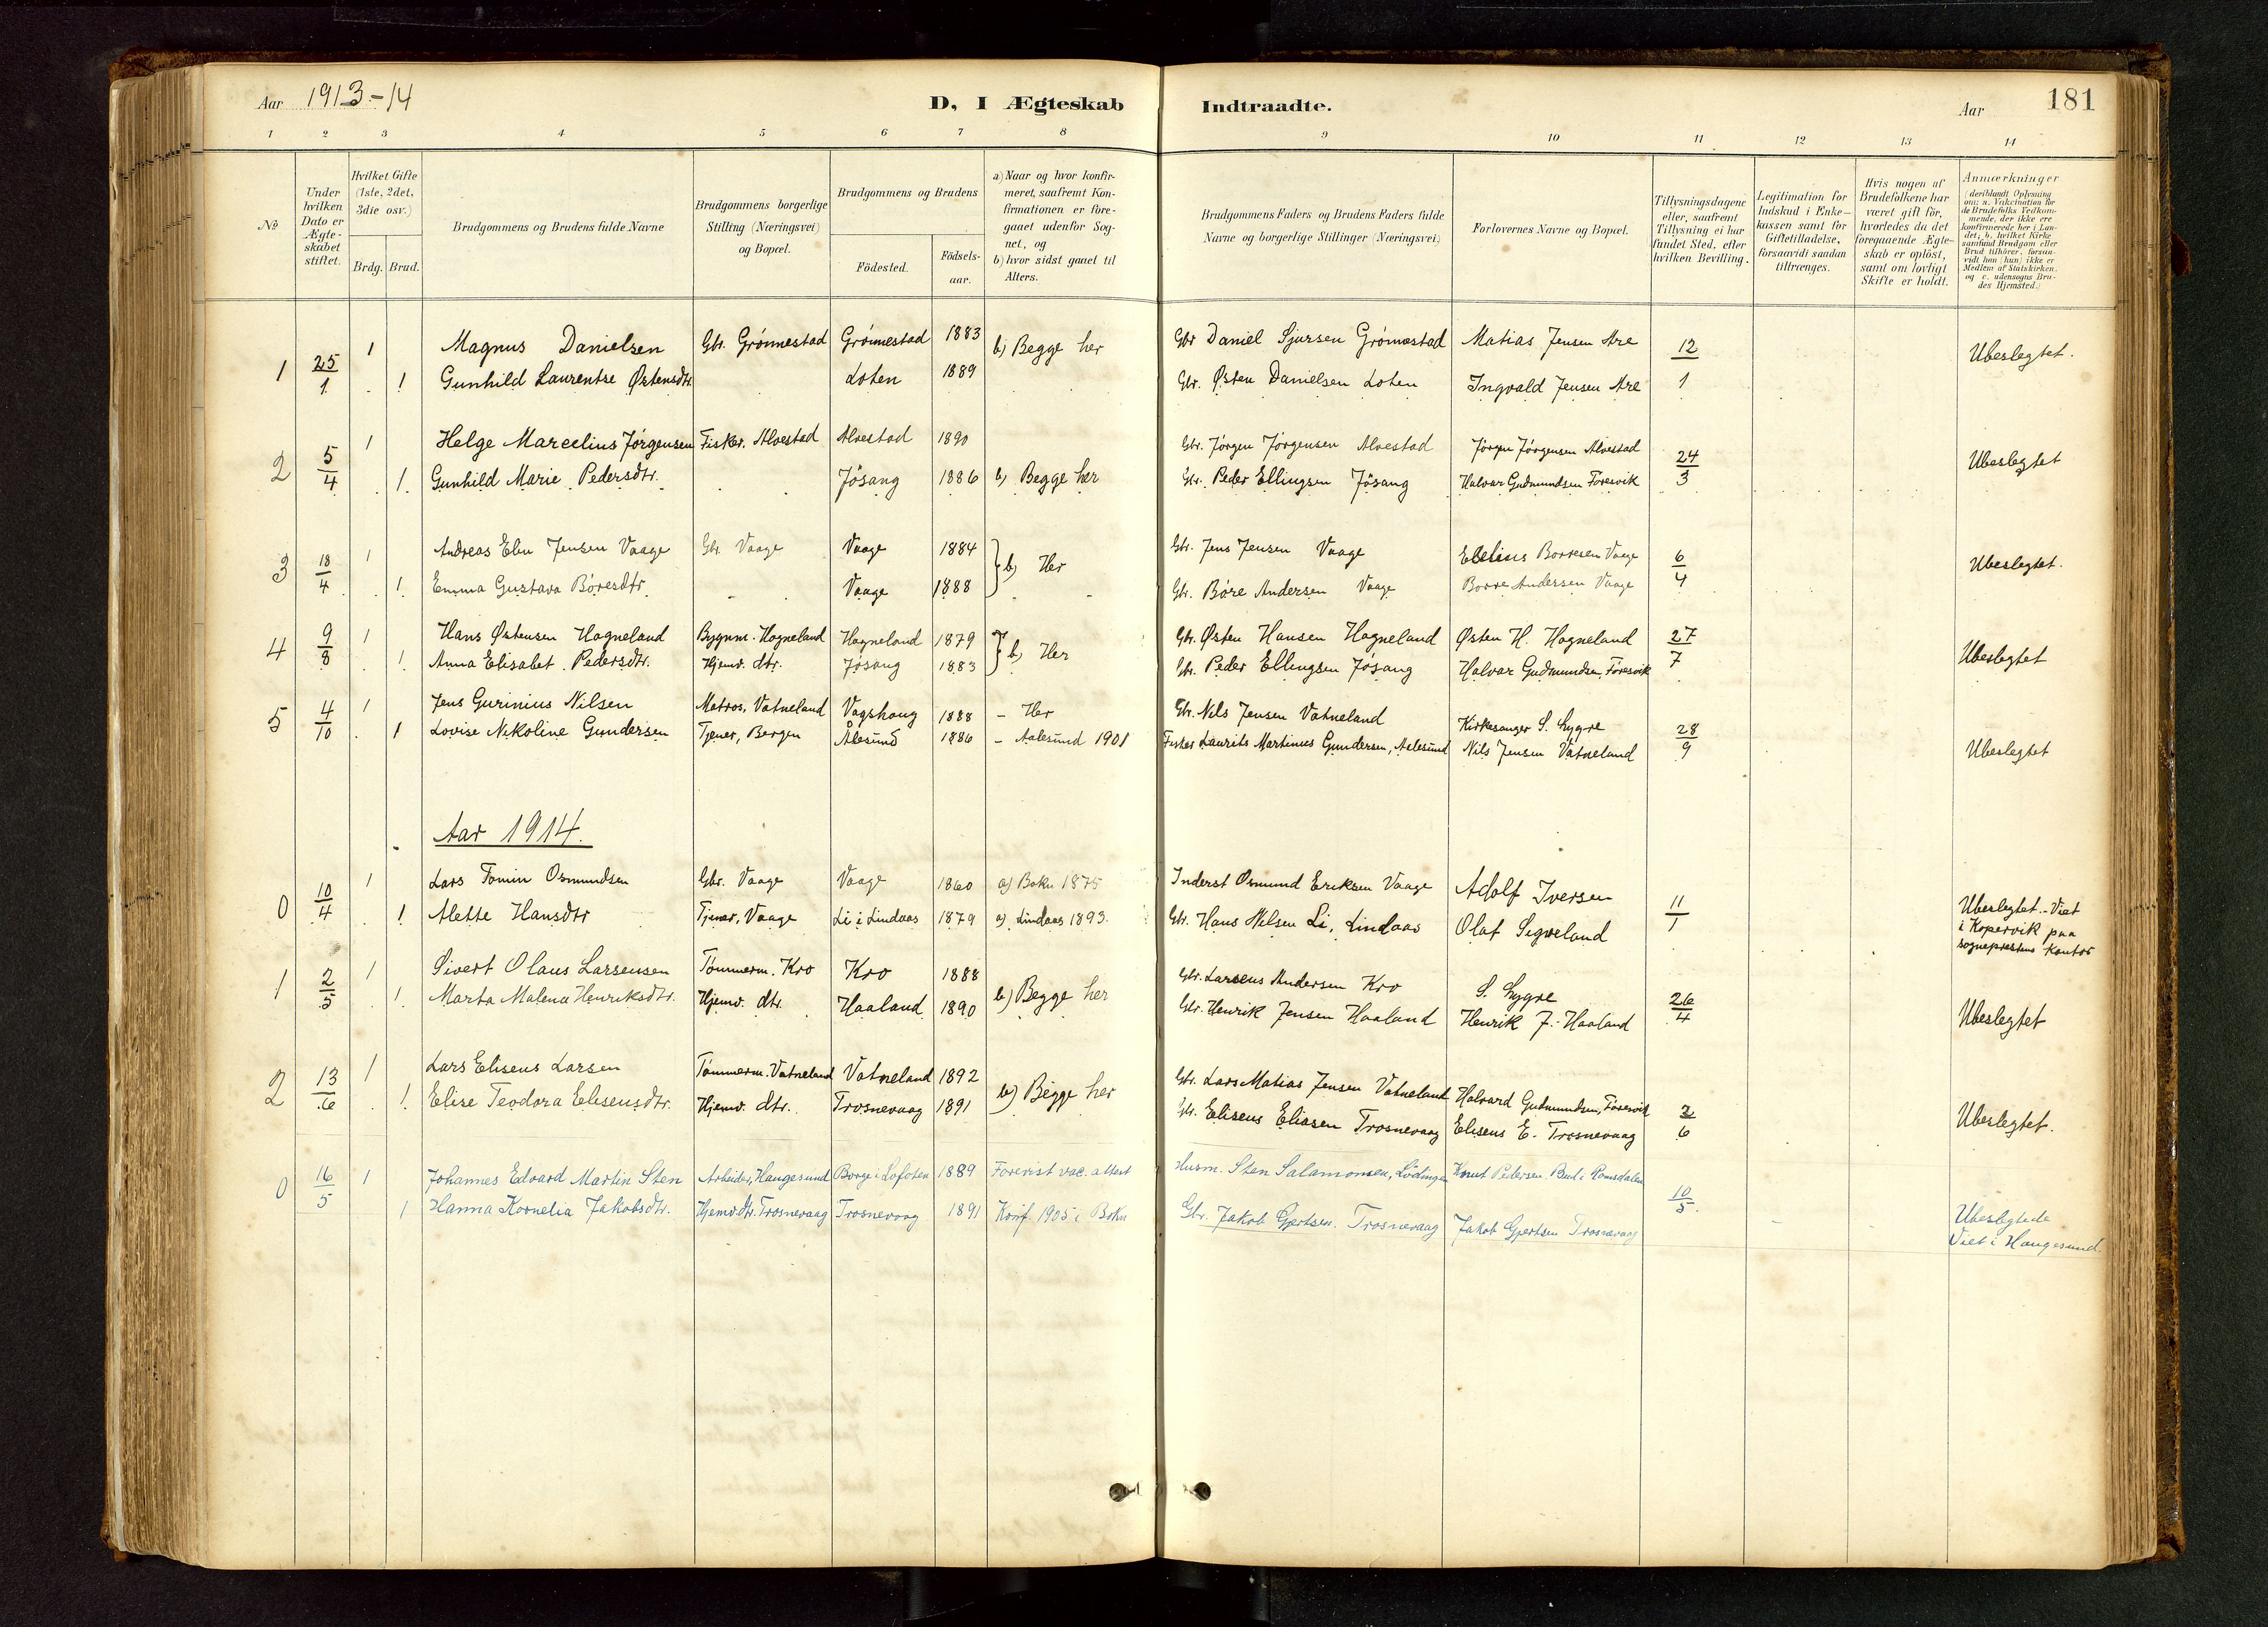 Aar 1913-14
D, I Ægteskab Indtraadte.
Aar 181
1 2 3 4 5 6 7 8 9 10 11 12 13 14
No
Under hvilken Dato er Ægteskabet stiftet.
Hvilket Gifte (1ste, 2det, 3die osv.)
Brdg. Brud.
Brudgommens og Brudens fulde Navne
Brudgommens borgerlige Stilling (Næringsvei) og Bopæl.
Brudgommens og Brudens
Födested.
Födselsaar.
a) Naar og hvor konfirmeret, saafremt Konfirmationen er foregaaet udenfor Sognet, og
b) hvor sidst gaaet til Alters.
Brudgommens Faders og Brudens Faders fulde Navne og borgerlige Stillinger (Næringsvei)
Forlovernes Navne og Bopæl.
Tillysningsdagene eller, saafremt Tillysning ei har fundet Sted, efter hvilken Bevilling.
Legitimation for Indskud i Enkekassen samt for Giftetilladelse, forsaavidt saadan tiltrænges.
Hvis nogen af Brudefolkene har været gift för, hvorledes da det foregaaende Ægteskab er oplöst, samt om lovligt Skifte er holdt.
Anmærkninger (deriblandt Oplysning om: a. Vakcination for de Brudefolks Vedkommende, der ikke ere konfirmerede her i Landet; b. hvilket Kirkesamfund Brudgom eller Brud tilhörer, forsaavidt han (hun) ikke er Medlem af Statskirken, og c. udensogns Brudes Hjemsted.)
1 25/1 1 Magnus Danielsen Gbr. Grönnestad Grönnestad 1883 b) Begge her Gbr Daniel Sjursen Grönnestad Matias Jensen Are 12/1 Ubeslegtet.
1 Gunhild Laurentse Østensdtr. Loten 1889 Gbr. Østen Danielsen Loten Ingvald Jensen Are
2 5/4 1 Helge Marcelius Jörgensen Fisker. Alvestad Alvestad 1890 Gbr. Jörgen Jörgensen Alvestad Jörgen Jörgensen Alvestad 24/3 Ubeslegtet
1 Gunhild Marie Pedersdtr. Jösang 1886 b) Begge her Gbr. Peder Ellingsen Jösang Halvar Gudmundsen Föresvik
3 18/4 1 Andreas Elen Jensen Vaage Gbr. Vaage Vaage 1884 b) Her Gbr. Jens Jensen Vaage Ebelius Borresen Vaage 6/4 Ubeslegtet.
1 Emma Gustava Böresdtr. Vaage 1888 Gbr. Böre Andersen Vaage Borre Andersen Vaage
4 9/8 1 Hans Østensen Hogneland Bygnm. Hogneland Hogneland 1879 b) Her Gbr. Østen Hansen Hogneland Østen H. Hogneland 27/7 Ubeslegtet
1 Anna Elisabet Pedersdtr. Hjemv. dtr. Jösang 1883 Gbr. Peder Ellingsen Jösang Halvar Gudmundsen, Föresvik
5 4/10 1 Jens Gurinius Nilsen Matros, Vatneland Vagshaug 1888 - Her Gbr. Nils Jensen Vatneland Kirkesanger S. Lygre 28/9 Ubeslegtet
1 Lovise Nikoline Gundersen Tjener, Bergen Ålesund 1886 - Aalesund 1901 Fisker Laurits Martinus Gundersen, Aalesund Nils Jensen Vatneland
Aar 1914.
0 10/4 1 Lars Tomin Osmundsen Gbr. Vaage Vaage 1860 a) Bokn 1875 Inderst Osmund Eriksen Vaage Adolf Iversen 11/1 Ubeslegtet. - Viet
1 Alette Hansdtr Tjener, Vaage Li i Lindaas 1879 a) Lindaas 1893. Gbr. Hans Nilsen Li, Lindaas Olaf Signeland i Kopervik paa
sogneprestens kontor
1 2/5 1 Sivert Olaus Larsensen Tömmerm. Kro Kro 1888 b) Begge her Gbr. Larsens Andersen Kro S. Lygre 26/4 Ubeslegtet
1 Marta Malena Henriksdtr. Hjemv. dtr. Haaland 1890 Gbr. Henrik Jensen Haaland Henrik J. Haaland
2 13/6 1 Lars Eliseus Larsen Tömmerm. Vatneland Vatneland 1892 b) Begge her Gbr. Lars Matias Jensen Vatneland Halvard Gudmundsen, Föresvik 2/6 Ubeslegtet.
1 Elise Teodora Elisensdtr. Hjemv. dtr. Trosnevaag 1891 Gbr. Elisens Eliasen Trosnevaag Elisens E. Trosnevaag
0 16/5 1 Johannes Edvard Martin Sten Arbeider, Haugesund Borge i Lofoten 1889 Forevist vac. attest Husm. Sten Salamonsen, Lödingen Knut Pedersen Bud i Romsdalen 10/5
1 Hanna Kornelia Jakobsdtr. Hjemv.dtr. Trosnevaag Trosnevaag 1891 Konf. 1905 i Bokn Gbr. Jakob Gjertsen. Trosnevaag Jakob Gjertsen Trosnevaag Ubeslegtede
Viet i Haugesund.